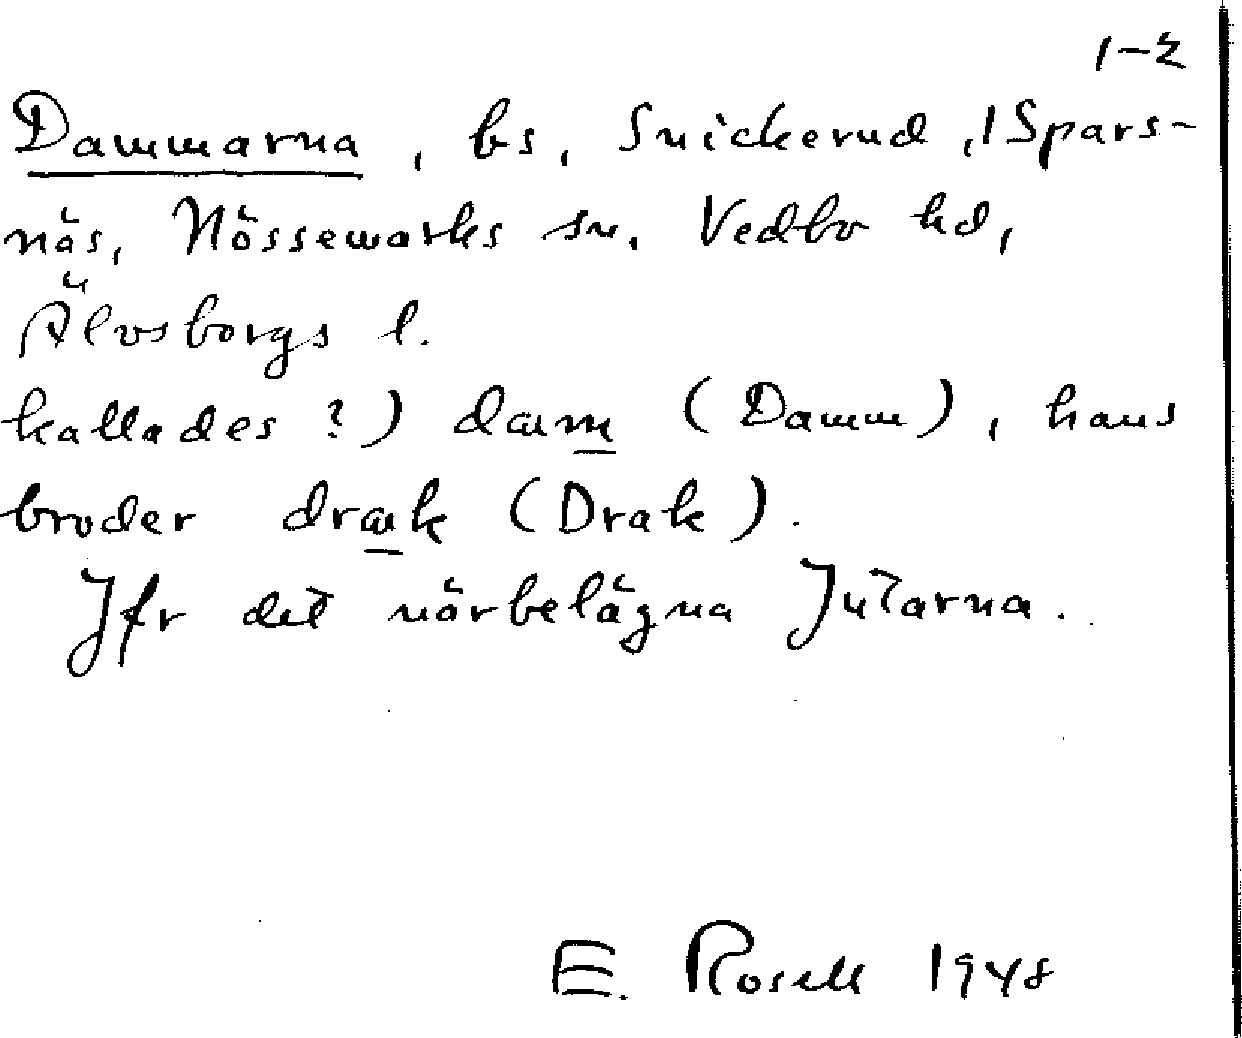 1-2
Dammarna, bs, Snickerud, 1 Spars-
näs, Nössemarks sn. Vedbo hd,
Älvsborgs l.
kallades ?) dam (Damm), hans
broder drak (Drak).
Jfr det närbelägna Jutarna.
E. Rosell 1948